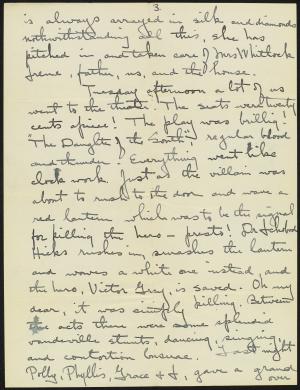 3.
is always arrayed in silk and diamonds
notwithstanding all this, she has
pitched in and taken care of Mrs Whitlock
Irene, father, us, and the house.
Tuesday afternoon a lot of us
went to the theater. The seats were twenty
cents apiece! The play was brilliq!
"The Daughter of the South", regular blood
and thunder. Everything went like
clock work. Just as the villain was
about to rush to the door and wave a
red lantern which was to be the signal
for killing the hero – presto!
Hiks rushes in, smashes the lantern
and waves a white one instead, and
the hero, Victor Grey, is saved. Oh my
dear, it was simply killing. Between
the acts there were some splendid
vaudeville stunts, dancing, singing,
and contortion
Last night
Polly, Phyllis, Grace & I, gave a grand
over